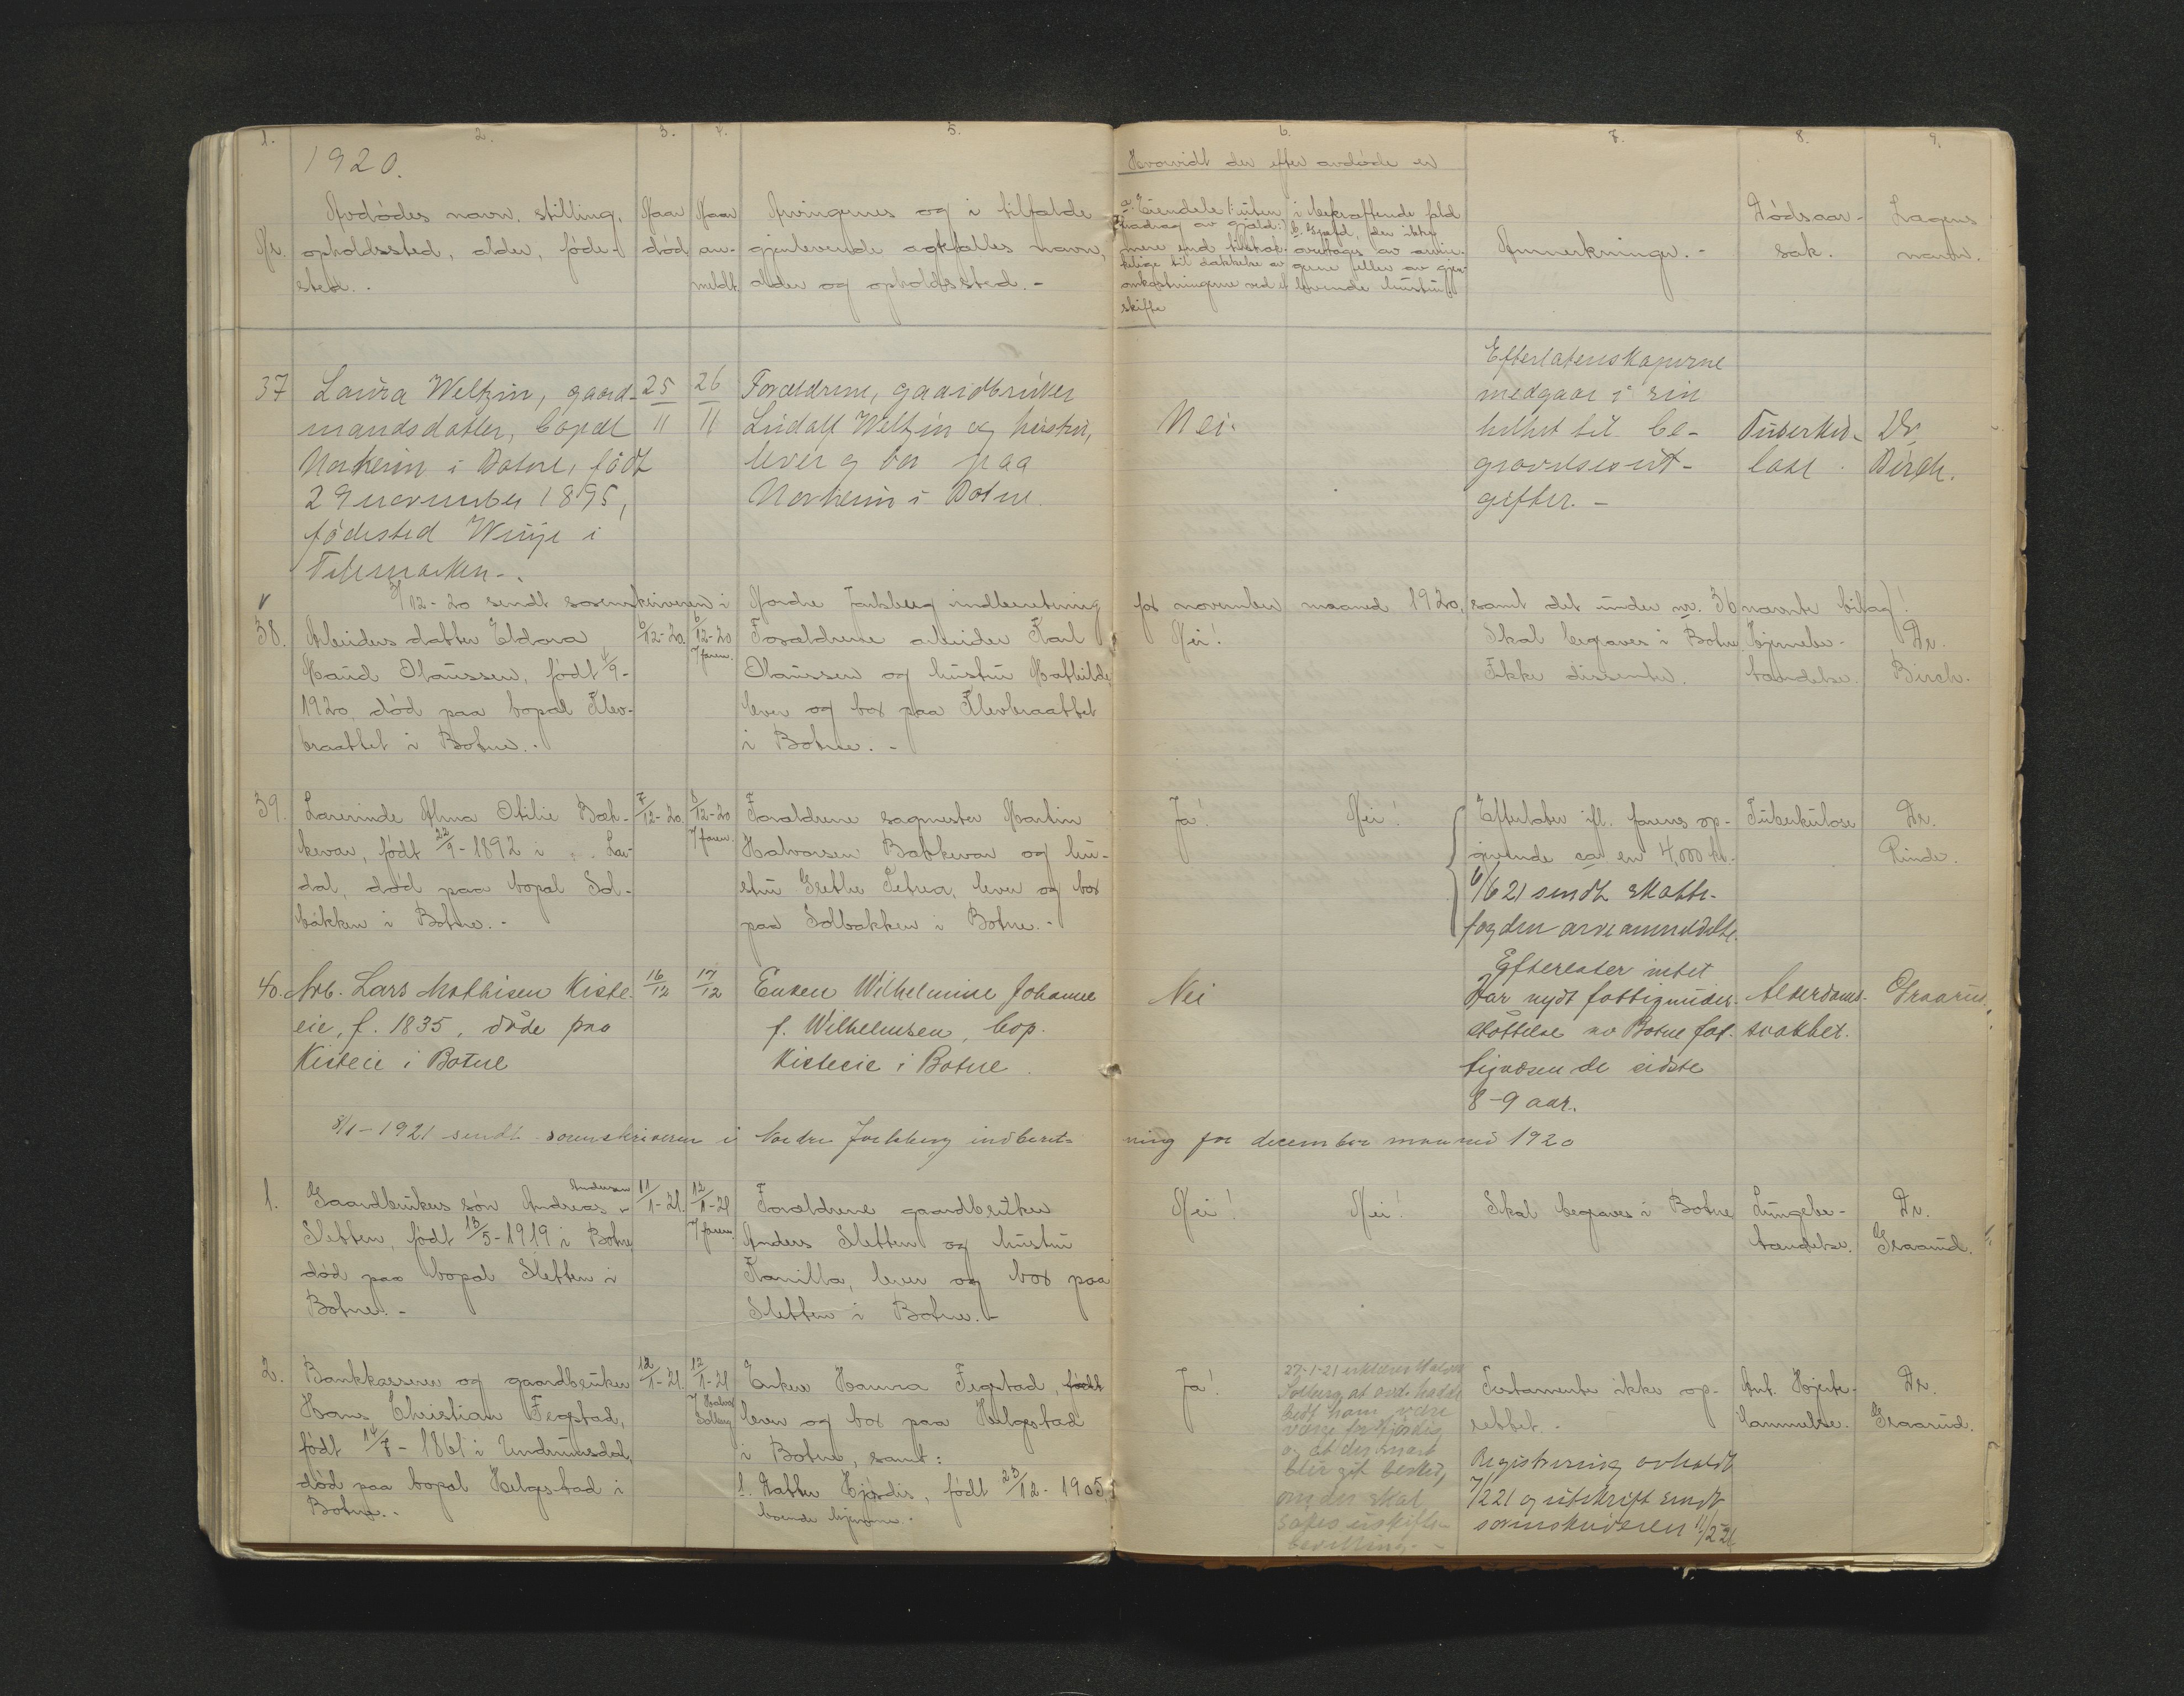 1. 2. 3. 4. 5. 6. 7. 8. 9.
1920.
Hvorvidt der efter avdøde er
Nr.
Avdødes navn, stilling,
opholdssted, alder, føde-
sted.
Naar
død
Naar
an-
meldt
Arvingernes og i tilfælde
gjenlevende ektefælles navn,
alder og opholdssted. -
a. Eiendele (uten
fradrag av gjæld)
mere end tilstræk-
kelige til dækkelse av
omkostningerne ved
skifte
i bekræftende fald
b. Gjæld, der ikke
overtages av arvin-
gerne eller av gjen-
levende hustru
Anmerkninger. -
Dødsaar-
sak.
Lægens
navn.
37
Laura Weltzin, gaard-
mandsdatter, bopæl
Norheim i Botne, født
29 november 1895,
fødested Winje i
Telemarken -.
25
11
26
11
Forældrene, gaardbruker
Ludolf Weltzin og hustru,
lever og bor paa
Norheim i Botne.
Nei.
Efterlatenskaperne
medgaar i sin
helhet til be-
gravelsesut-
gifter. -
Tuberku-
lose.
Dr.
Birch.
/12-20 sendt sorenskriveren i Nordre Jarlsberg indberetning for november maaned 1920, samt det under nr. 36 nævnte bilag!
38.
Arbeiders datter Eldora
Maud Olaussen, født /9-
1920, død paa bopæl Klev-
braattet i Botne. -
6/12-20.
6/12-20
7/faren.
Forældrene arbeider Karl
Olaussen og hustru Mathilde,
lever og bor paa Klevbraattet
i Botne. -
Nei!
Skal begraves i Botne.
Ikke dissenter.
Hjernebe-
tændelse.
Dr.
Birch.
39.
Lærerinde Alma Otilie Bæk-
kevar, født 22/9-1892 i Lar-
dal, død paa bopæl Sol-
bakken i Botne. -
7/12-20.
8/12-20
7/faren.
Forældrene sagmester Martin
Halvorsen Bækkevar og hu-
stru Grethe Petrea, lever og bor
paa Solbakken i Botne. -
Ja!
Nei!
Efterlater ifl. farens op-
givende ca en 4,000 kr.
6/6 21 sendt skatte-
fogden arveanmeldelse.
Tuberkulose
Dr.
Rinde.
40.
Arb. Lars Mathisen Kiste-
eie, f. 1835, døde paa
Kisteeie i Botne
16
12
17
12
Enken Wilhelmine Johanne
f. Wilhelmsen, bop.
Kisteeie i Botne.
Nei
Efterlater intet
Har nydt fattigunder-
støttelse av Botne fat-
tigvæsen de sidste
8-9 aar.
Alderdoms-
svakhet.
Graarud.
8/1-1921 sendt sorenskriveren i Nordre Jarlsberg indberet- ning for december maaned 1920
1.
Gaardbrukers søn Andreas Andersen
Sletten, født 13/5-1919 i Botne,
død paa bopæl Sletten i
Botne. -
11/1-21.
12/1-21
7/faren.
Forældrene gaardbruker
Anders Sletten og hustru
Kamilla, lever og bor paa
Sletten i Botne. -
Nei!
Nei!
Skal begraves i Botne
Lungebe-
tændelse.
Dr.
Graarud.
2.
Bankkasserer og gaardbruker
Hans Christian Fegstad,
født 14/7-1861 i Undrumsdal,
død paa bopæl Helgestad i
Botne. -
12/1-21.
12/1-21
7/Halvor
Solberg
Enken Hanna Fegstad, født
lever og bor paa Helgestad
i Botne, samt:
1. Datter Hjørdis, født 23/12-1905,
boende hjemme.
Ja!
27-1-21 erklærer Halvor
Solberg, at avd. hadde
bedt ham være
værge for Hjørdis
og at der snart
blir git besked,
om der skal
søkes uskifte-
bevilling. -
Testamente ikke op-
rettet. -
Registrering avholdt
7/2 21 og utskrift sendt
sorenskriveren 11/2-21
Ant. Hjerte-
lammelse.
Dr.
Graarud.